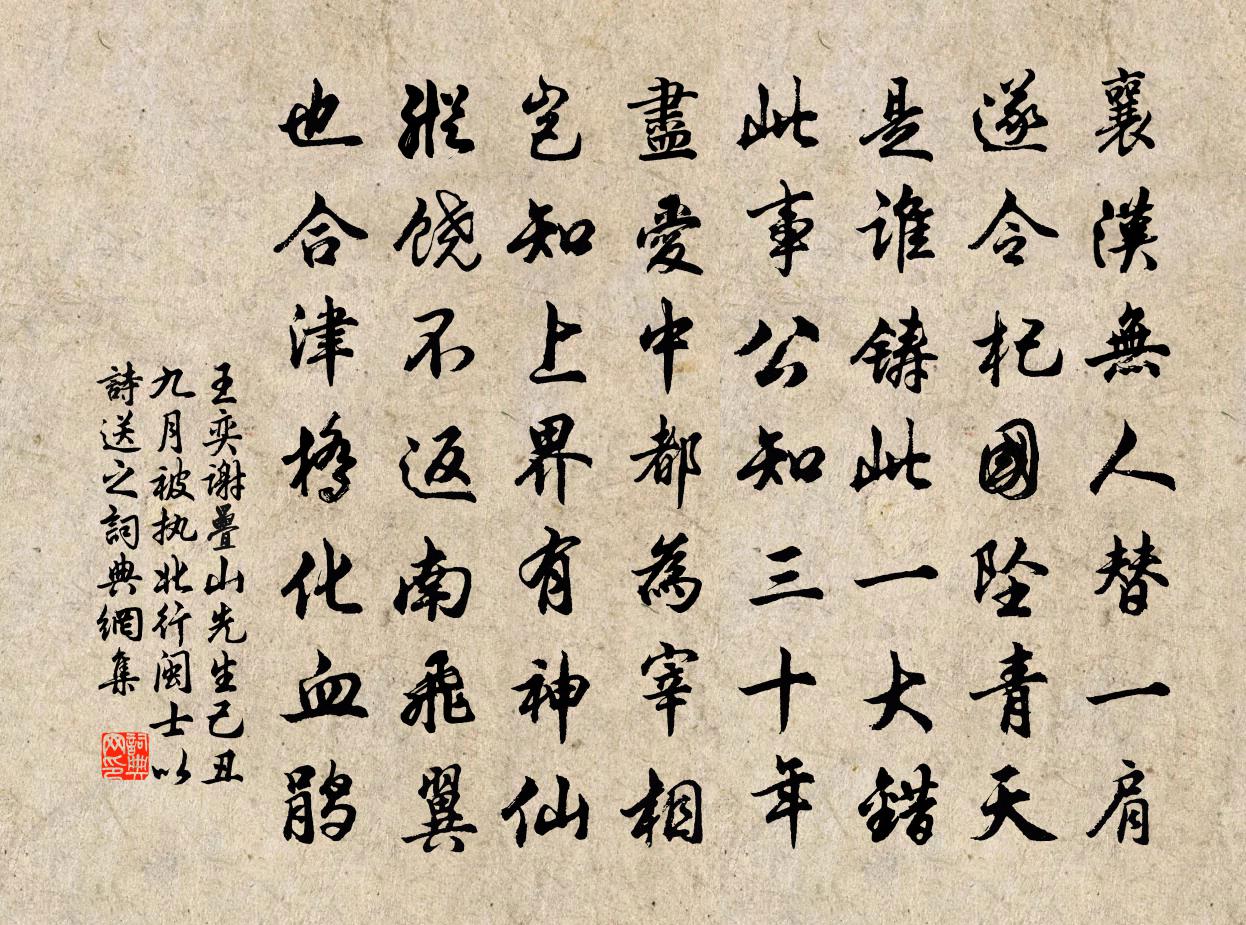 襄漢無人替一肩
遂令杞國坠青天
是誰鑄此一大錯
此事公知三十年
盡愛中都為宰相
岂知上界有神仙
縱饶不返南飛翼
也合津橋化血鹃
王奕谢疊山先生己丑
九月被执北行闽士以
詩送之詞典網集
詞典
网印